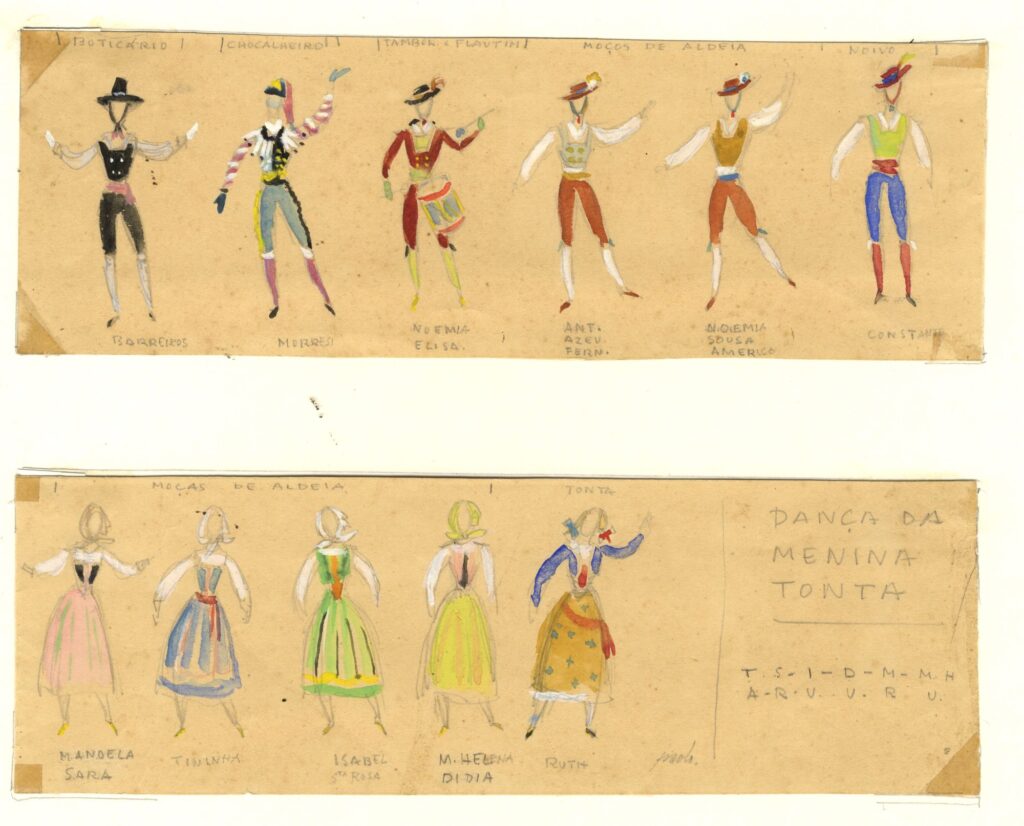 BOTICÁRIO
CHOCALHEIRO
TAMBOR. E FLAUTIM
MOÇOS DE ALDEIA
NOIVO
BARREIROS
MORRESI
NOEMIA
ELISA.
ANT.
AZEV.
FERN.
NOEMIA
SOUSA
AMERICO
MOÇAS DE ALDEIA
TONTA
DANÇA DA
MENINA
TONTA
T.-S-I-D-M-M.H
A-R.U. U. R U.
MANOELA
SARA
TININHA
ISABEL
STA ROSA
M. HELENA
DIDIA
RUTH